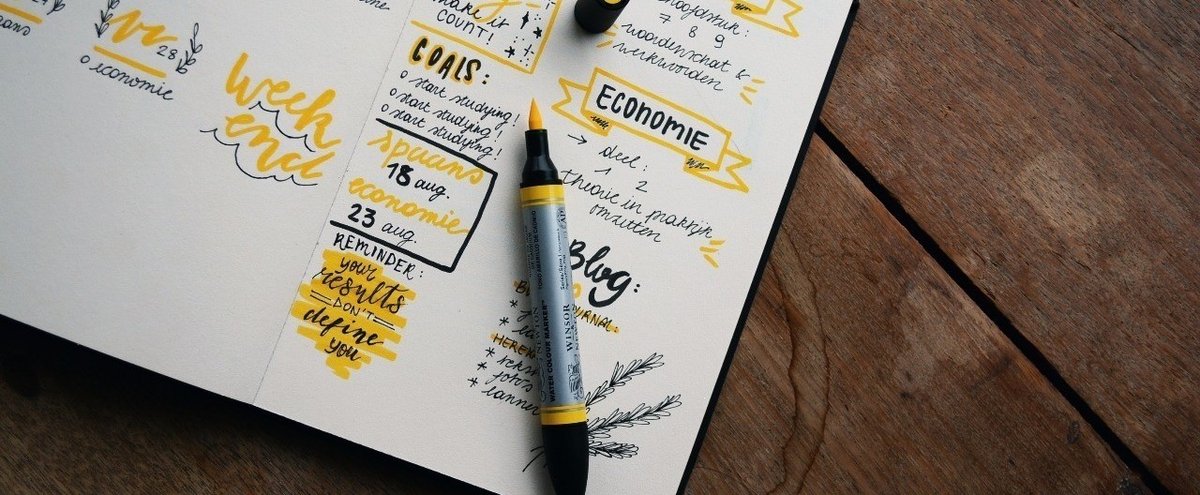 vr 28
o economie
week
end
make it
COUNT!
GOALS:
o start studying!
o start studying!
o start studying!
spaans
18 aug.
economie
23 aug.
REMINDER:
your
results
DON'T
define
you
7 8 9
woordenschat &
werkwoorden
ECONOMIE
→ deel:
1 2
theorie in praktijk
omzetten
Blog:
JOURNAL:
* tekst
* foto's
* banner
WINSOR
NEWTON
WATER COLOUR MARKER